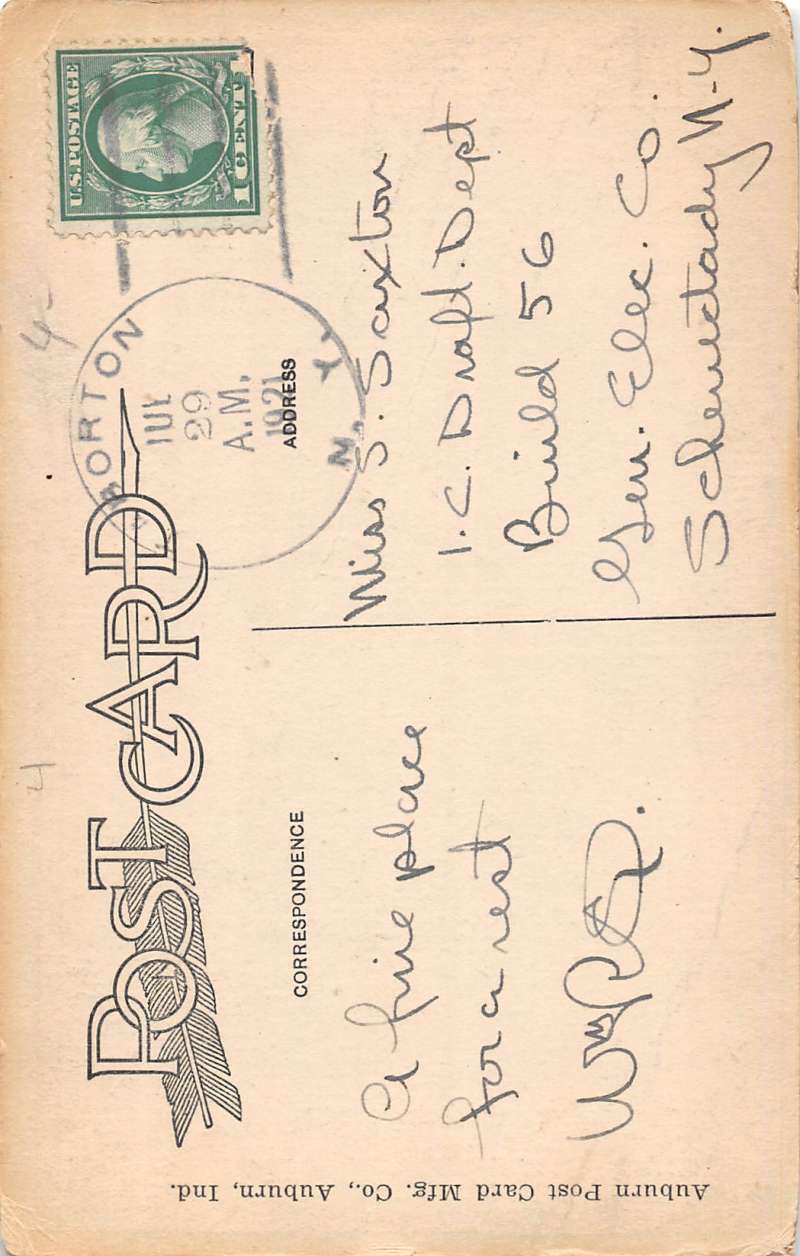 POST CARD
U.S. POSTAGE
1 CENT 1
ORTON
JUL
29
A.M.
1921
N. Y.
CORRESPONDENCE
ADDRESS
A fine place
for a rest
Miss S. Saxton
I. C. Draft. Dept
Build 56
Gen. Elec. Co.
Schenectady N-Y.
4-
4
Auburn Post Card Mfg. Co., Auburn, Ind.